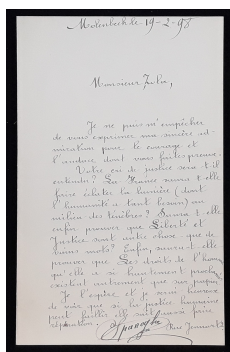 Molenbeek le 19-2-98
Monsieur Zola,
Je ne puis m'empêcher
de vous exprimer ma sincère ad-
miration pour le courage et
l'audace dont vous faites preuve.
Votre cri de justice sera-t-il
entendu? La France saura-t-elle
faire éclater la lumière (dont
l'humanité a tant besoin) au
milieu des ténèbres? Saura-t-elle
enfin prouver que Liberté et
Justice sont autre chose que de
vains mots? Enfin, saura-t-elle
prouver que Les droits de l'homme
qu'elle a si hautement proclamés
existent autrement que sur papier
Je l'espère, et je serai heureux
de voir que si la justice humaine
peut faillir elle sait aussi faire
réparation.
Spanoghe